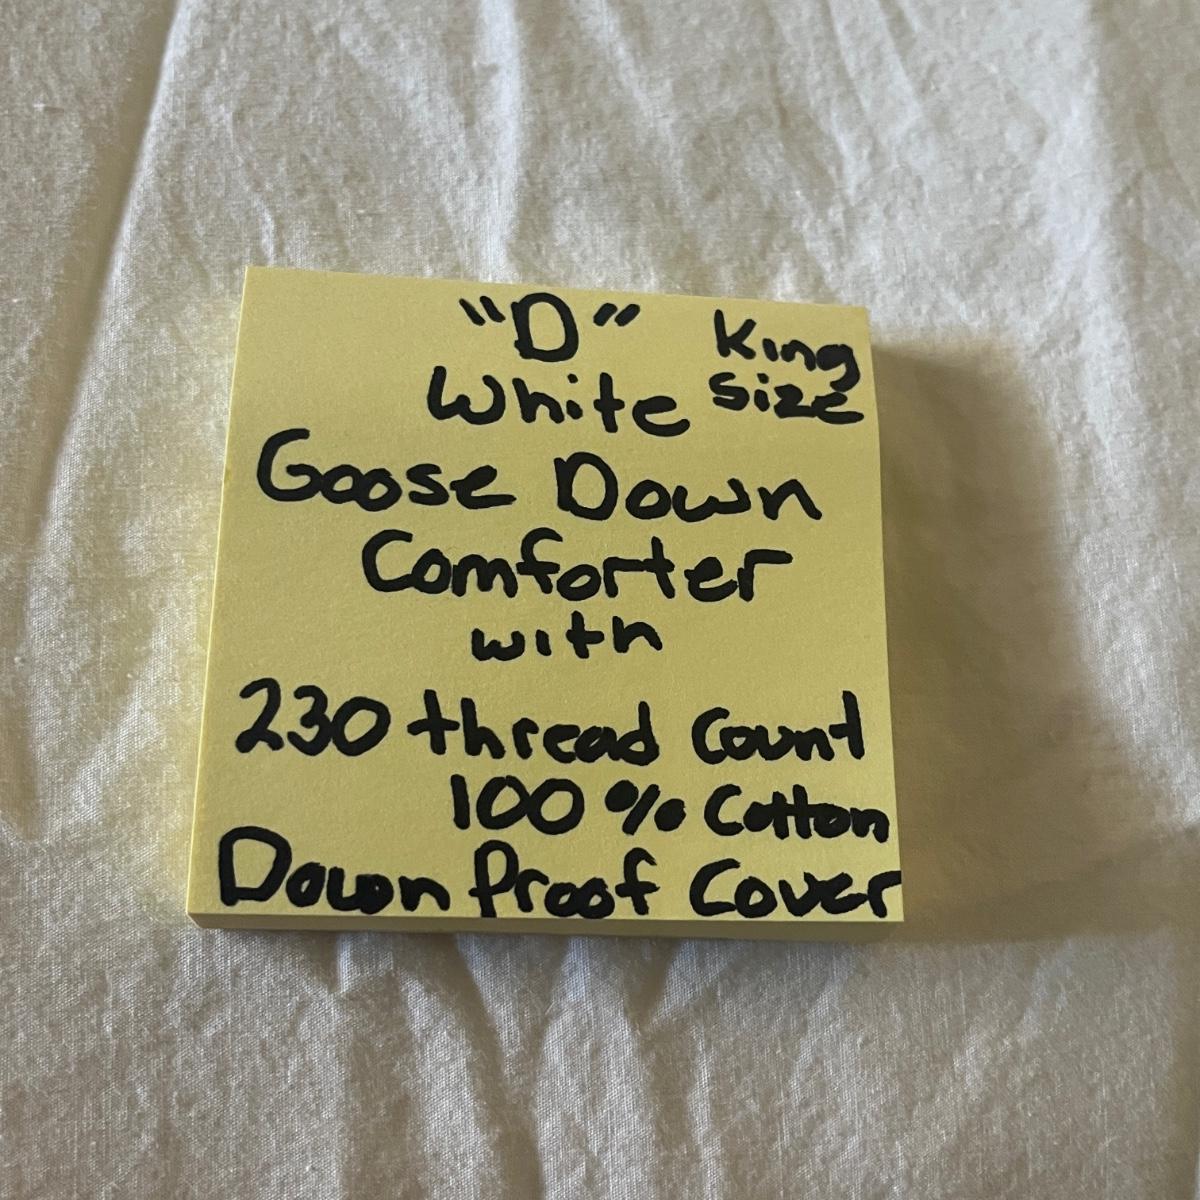 "D"
King
Size
White
Goose Down
Comforter
with
230 thread Count
100% Cotton
Down Proof Cover